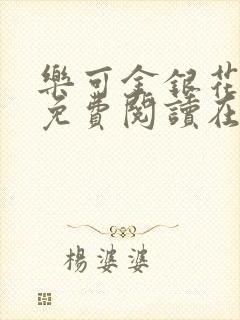 樂可金銀花
免費閱讀在
楊婆婆